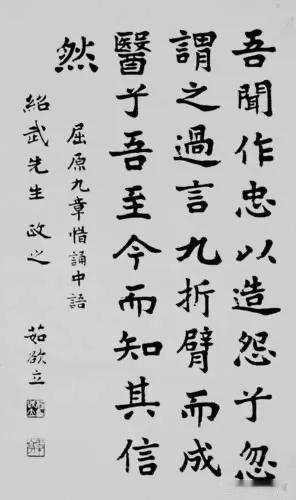 吾聞作忠以造怨兮忽
謂之過言九折臂而成
醫兮吾至今而知其信
然
屈原九章惜誦中語
紹武先生 政之
茹欲立